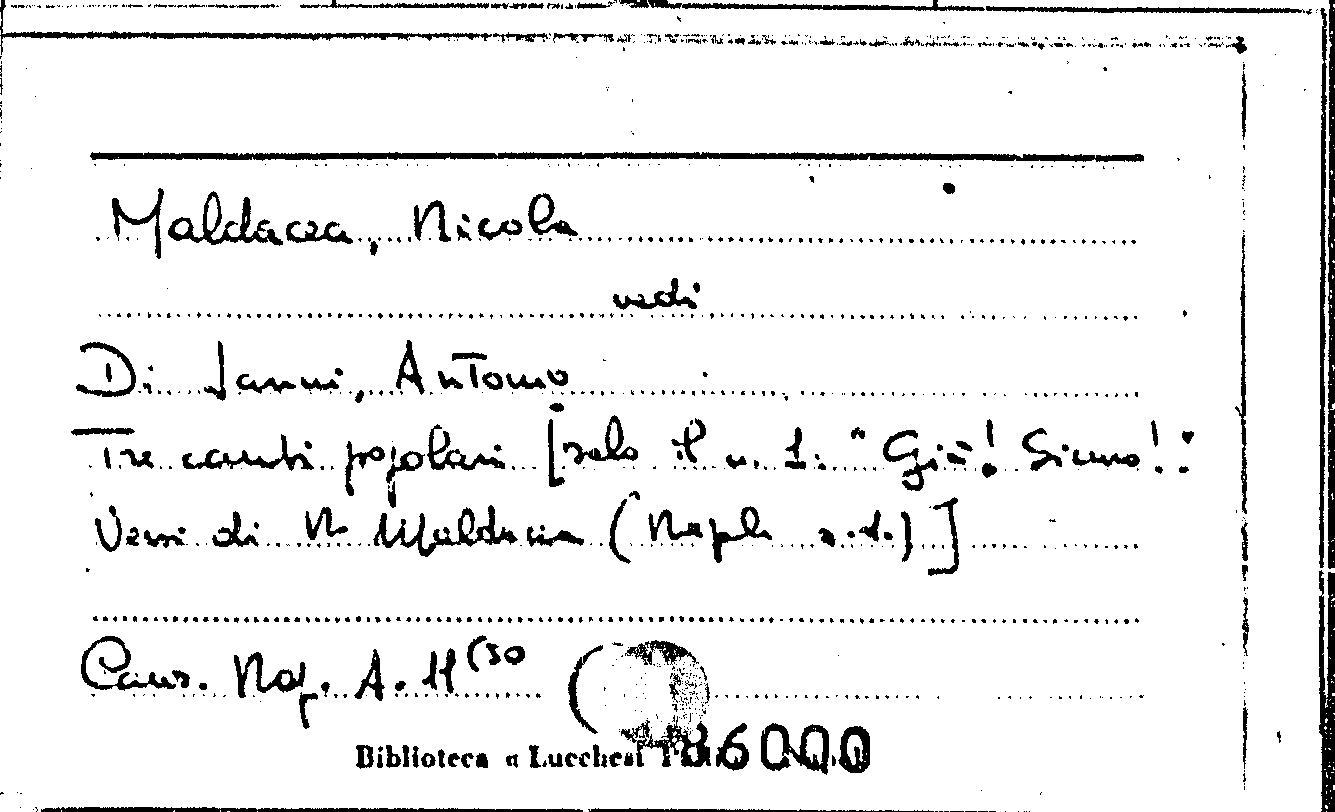 Maldacea, Nicola
vedi
Di Janni, Antonio
Tre canti popolari [solo il n. 1: "Già! Siamo!"
Versi di N. Maldacea (Napoli s.d.)]
Canz. Nap. A. 11 (30
Biblioteca "Lucchesi
86000